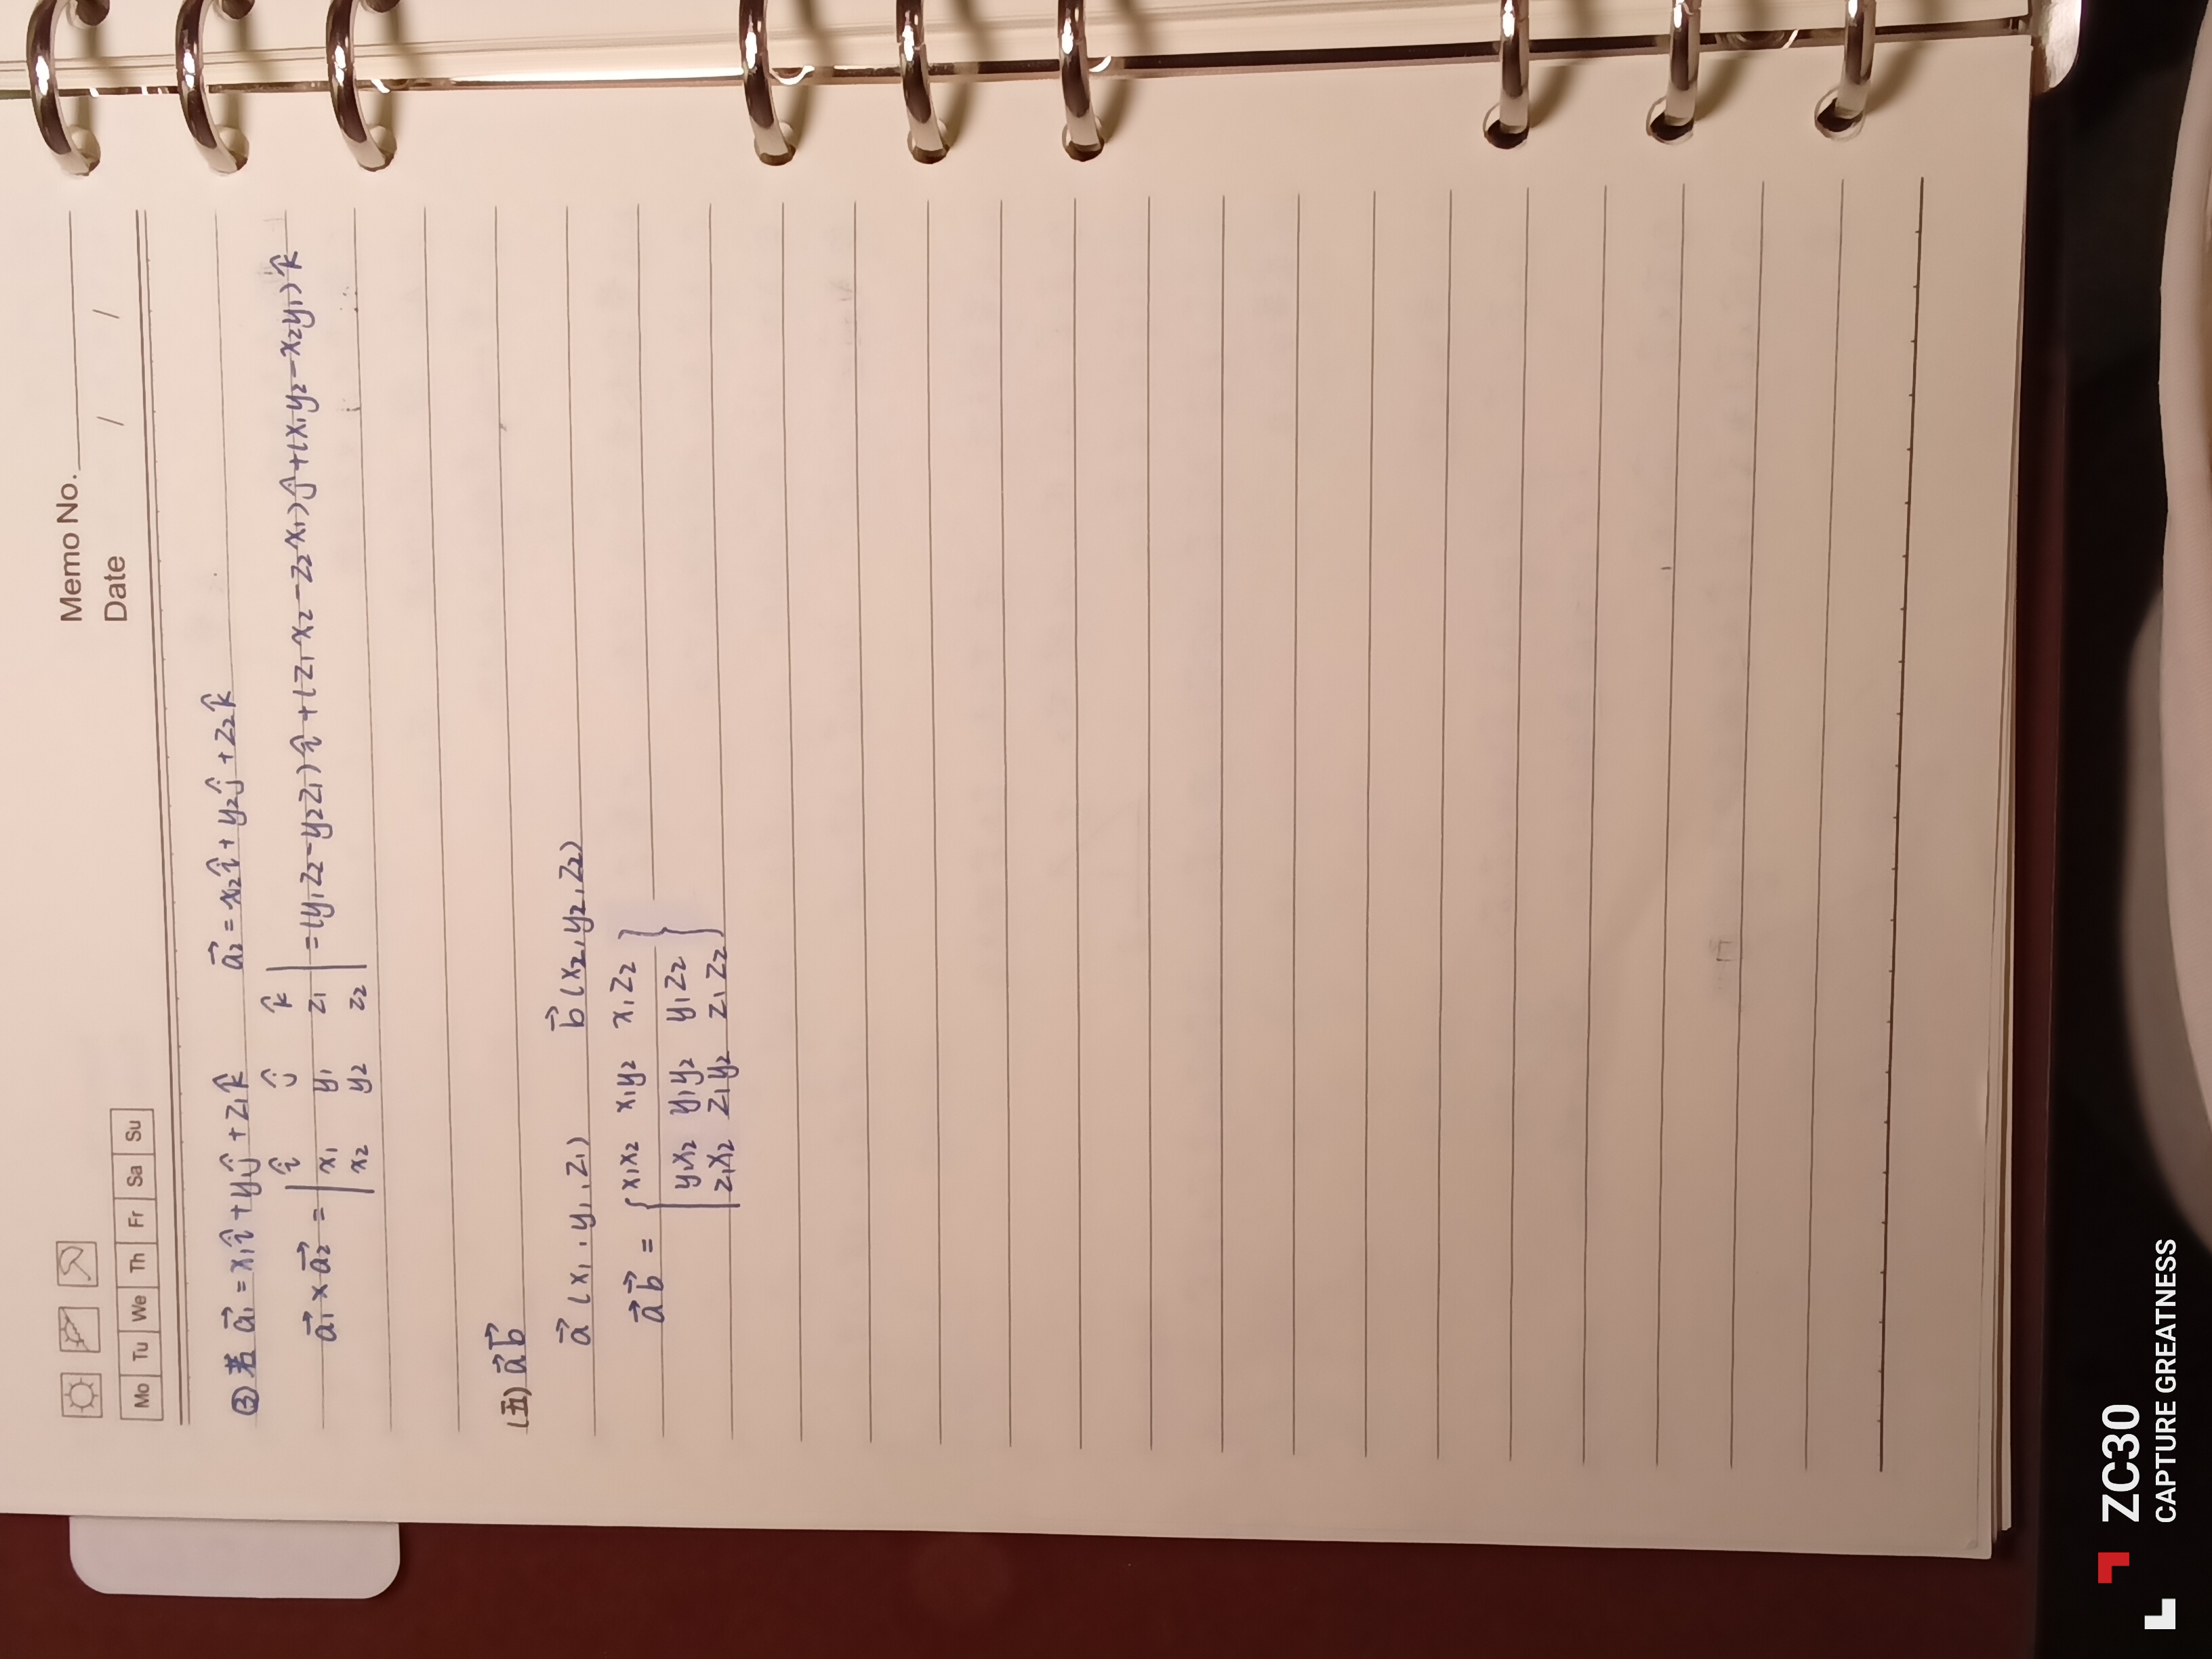 Memo No.
Mo Tu We Th Fr Sa Su
Date / /
③ 若 a⃗₁ = x₁î + y₁ĵ + z₁k̂ a⃗₂ = x₂î + y₂ĵ + z₂k̂
a⃗₁ × a⃗₂ = | î ĵ k̂ |
| x₁ y₁ z₁ | = (y₁z₂ - y₂z₁)î + (z₁x₂ - z₂x₁)ĵ + (x₁y₂ - x₂y₁)k̂
| x₂ y₂ z₂ |
(五) a⃗b⃗
a⃗ (x₁, y₁, z₁) b⃗ (x₂, y₂, z₂)
a⃗b⃗ = { x₁x₂ x₁y₂ x₁z₂ }
y₁x₂ y₁y₂ y₁z₂
z₁x₂ z₁y₂ z₁z₂
ZC30
CAPTURE GREATNESS